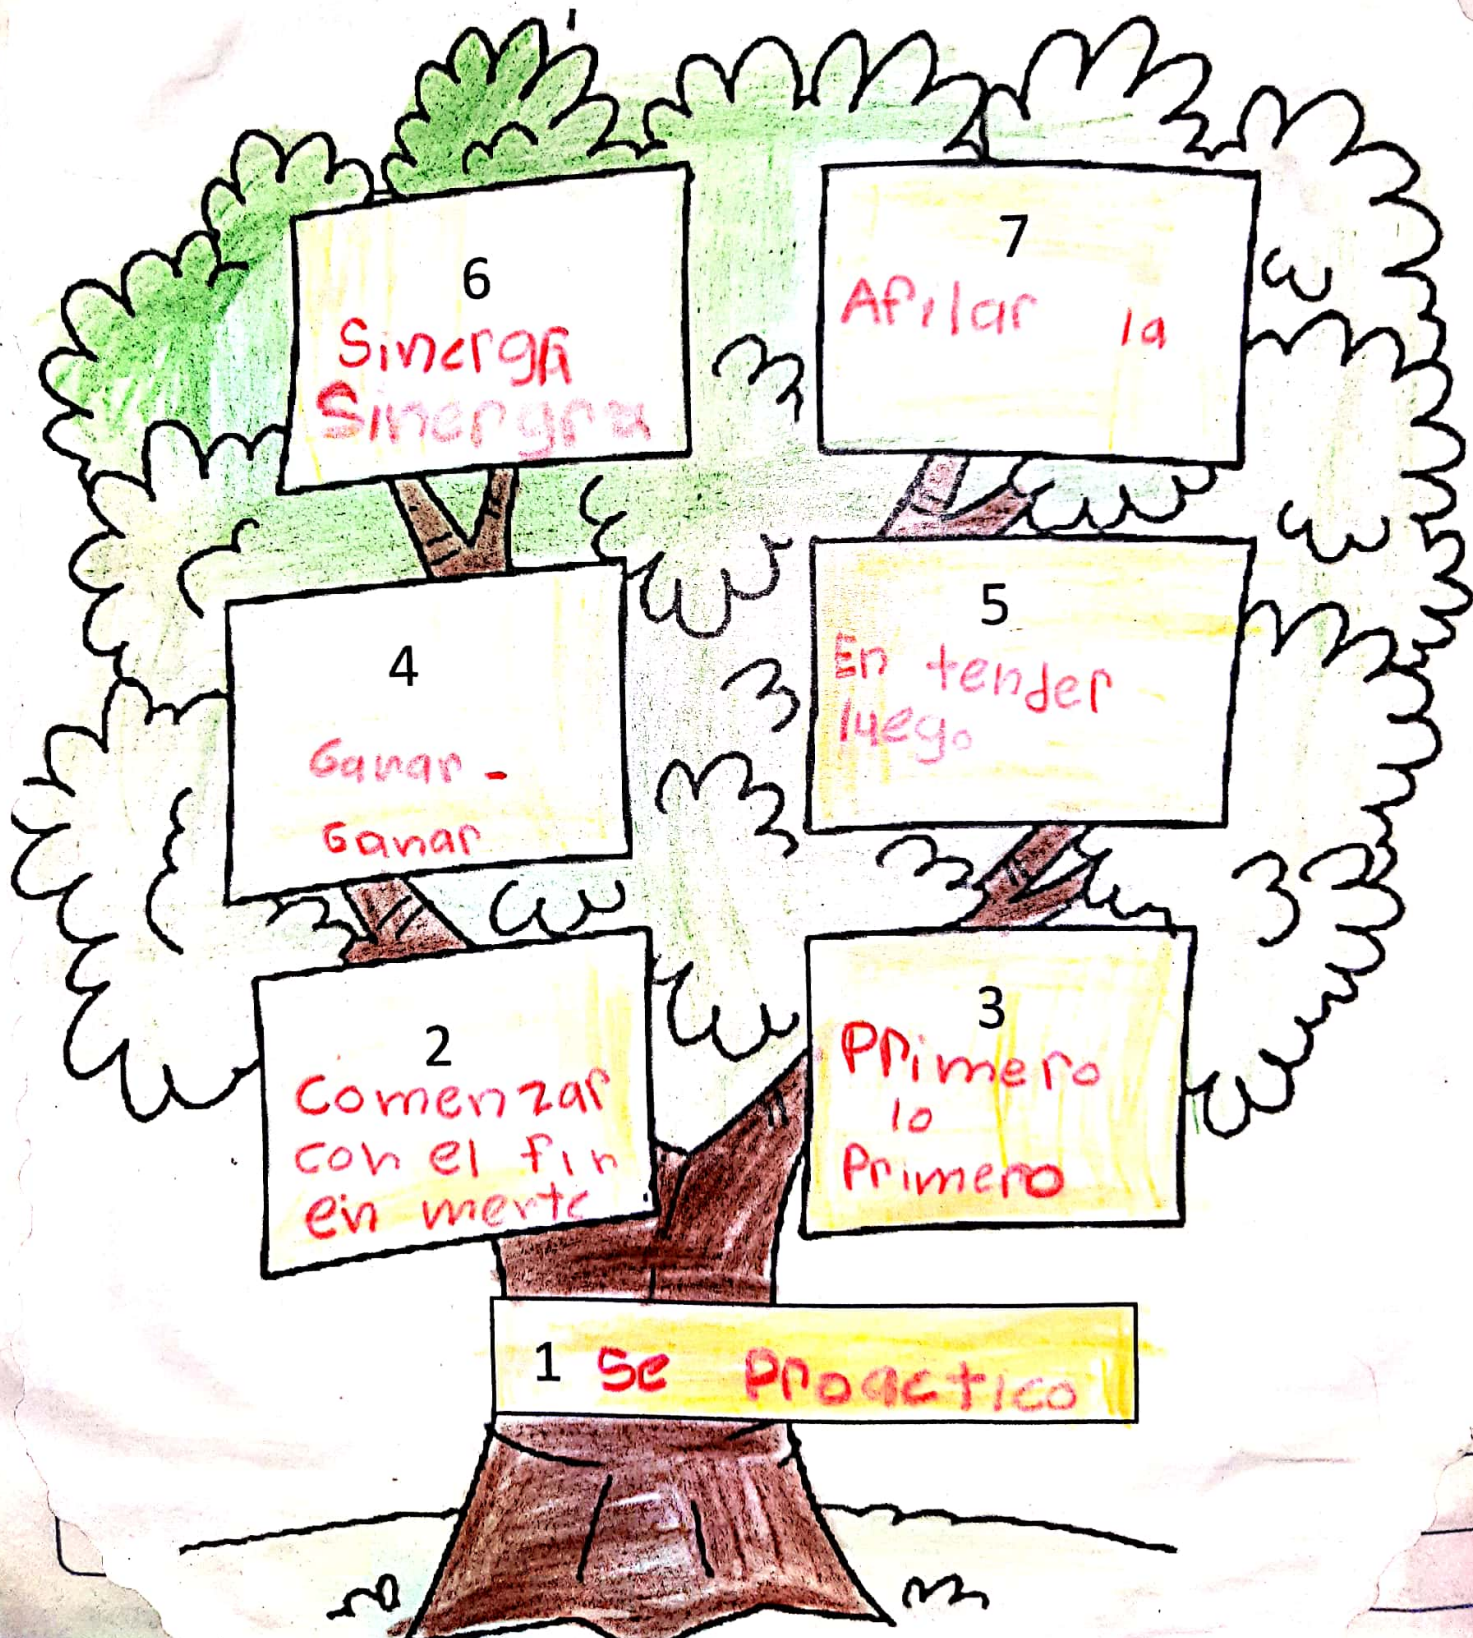 6
Sinergia
Sinergia
7
Afilar la
4
Ganar -
Ganar
5
En tender
luego
2
Comenzar
con el fin
ein mente
3
Primero
lo
Primero
1 Se Proactico